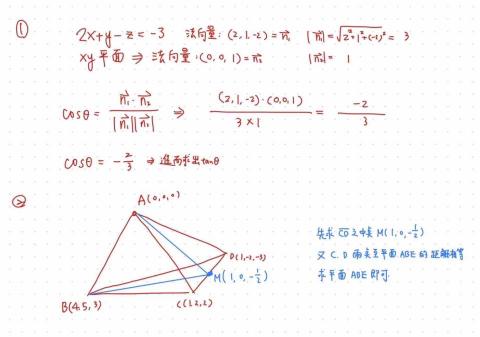 ①
2x+y-z=-3 法向量:(2,1,-2)=n₁ |n₁|=√2²+1²+(-2)² = 3
xy平面 ⇒ 法向量:(0,0,1)=n₂ |n₂|= 1
cosθ = n₁·n₂ / |n₁||n₂| ⇒ (2,1,-2)·(0,0,1) / 3×1 = -2 / 3
cosθ = -2/3 ⇒ 進而求出tanθ
②
A(0,0,0)
D(1,-2,-3)
M(1,0,-1/2)
B(4,5,3)
C(1,2,2)
先求 CD 之中點 M(1,0,-1/2)
又 C.D 兩點至平面 ABE 的距離相等
求平面 ABE 即可